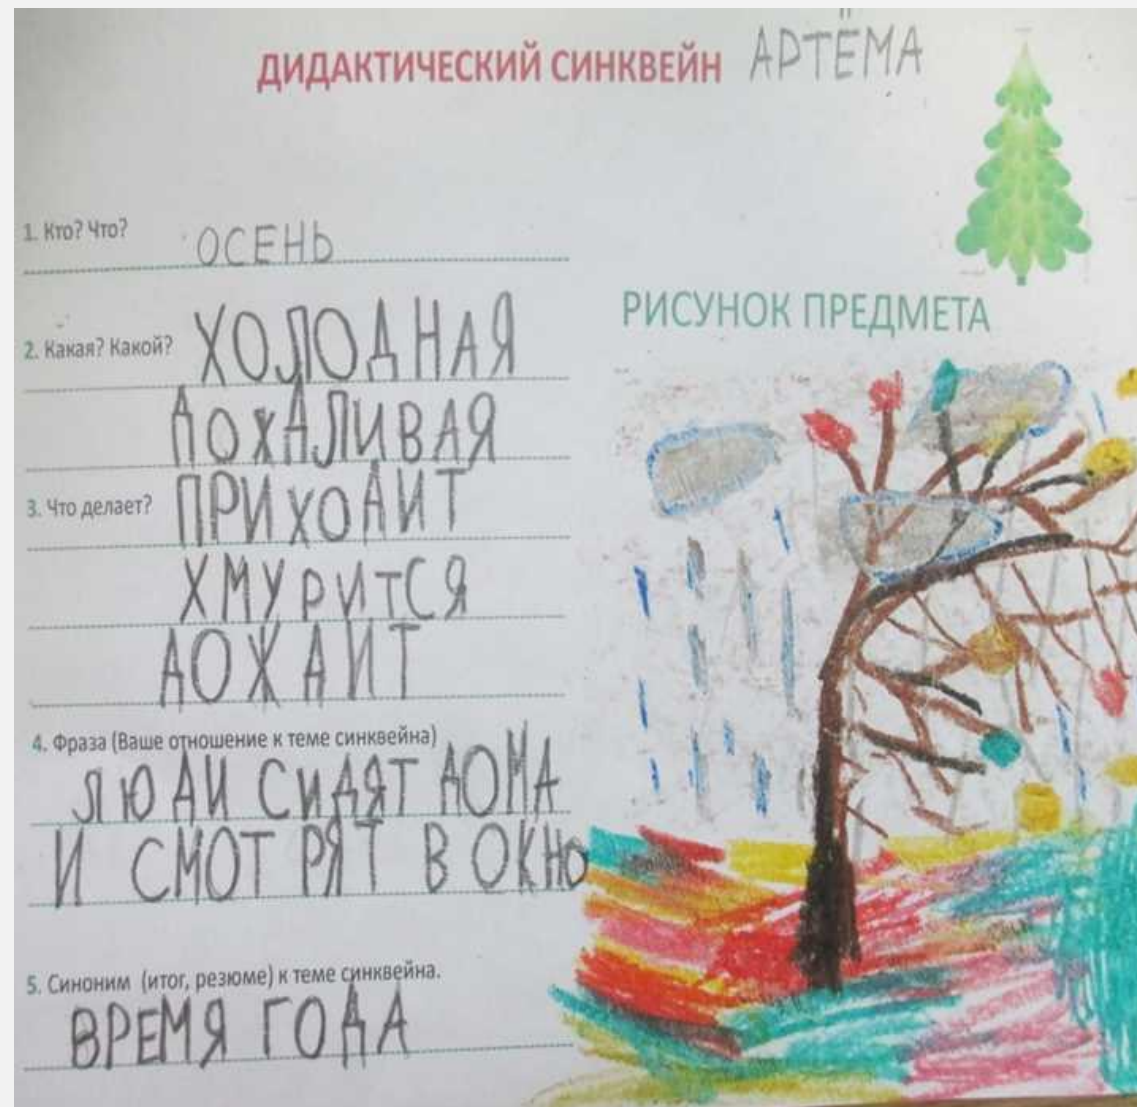 ДИДАКТИЧЕСКИЙ СИНКВЕЙН АРТЁМА
1. Кто? Что? ОСЕНЬ
2. Какая? Какой? ХОЛОДНАЯ
ДОХДЛИВАЯ
3. Что делает? ПРИХОДИТ
ХМУРИТСЯ
ДОЖДИТ
4. Фраза (Ваше отношение к теме синквейна)
ЛЮДИ СИДЯТ ДОМА
И СМОТРЯТ В ОКНО
5. Синоним (итог, резюме) к теме синквейна.
ВРЕМЯ ГОДА
РИСУНОК ПРЕДМЕТА